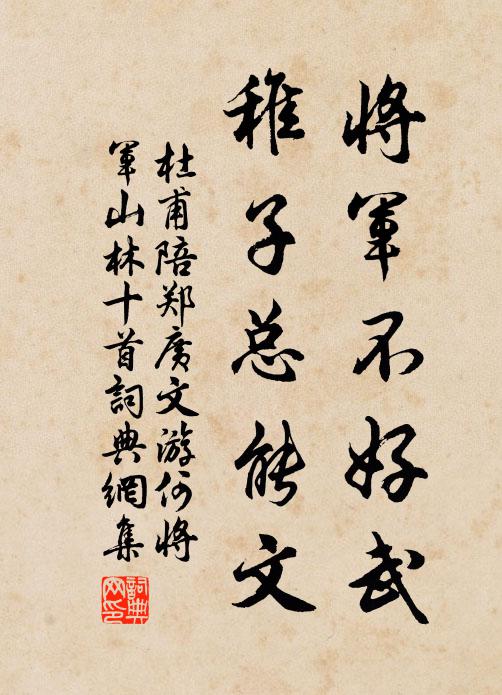 将军不好武
稚子总能文
杜甫陪郑廣文游何将
军山林十首詞典網集
詞典
网印